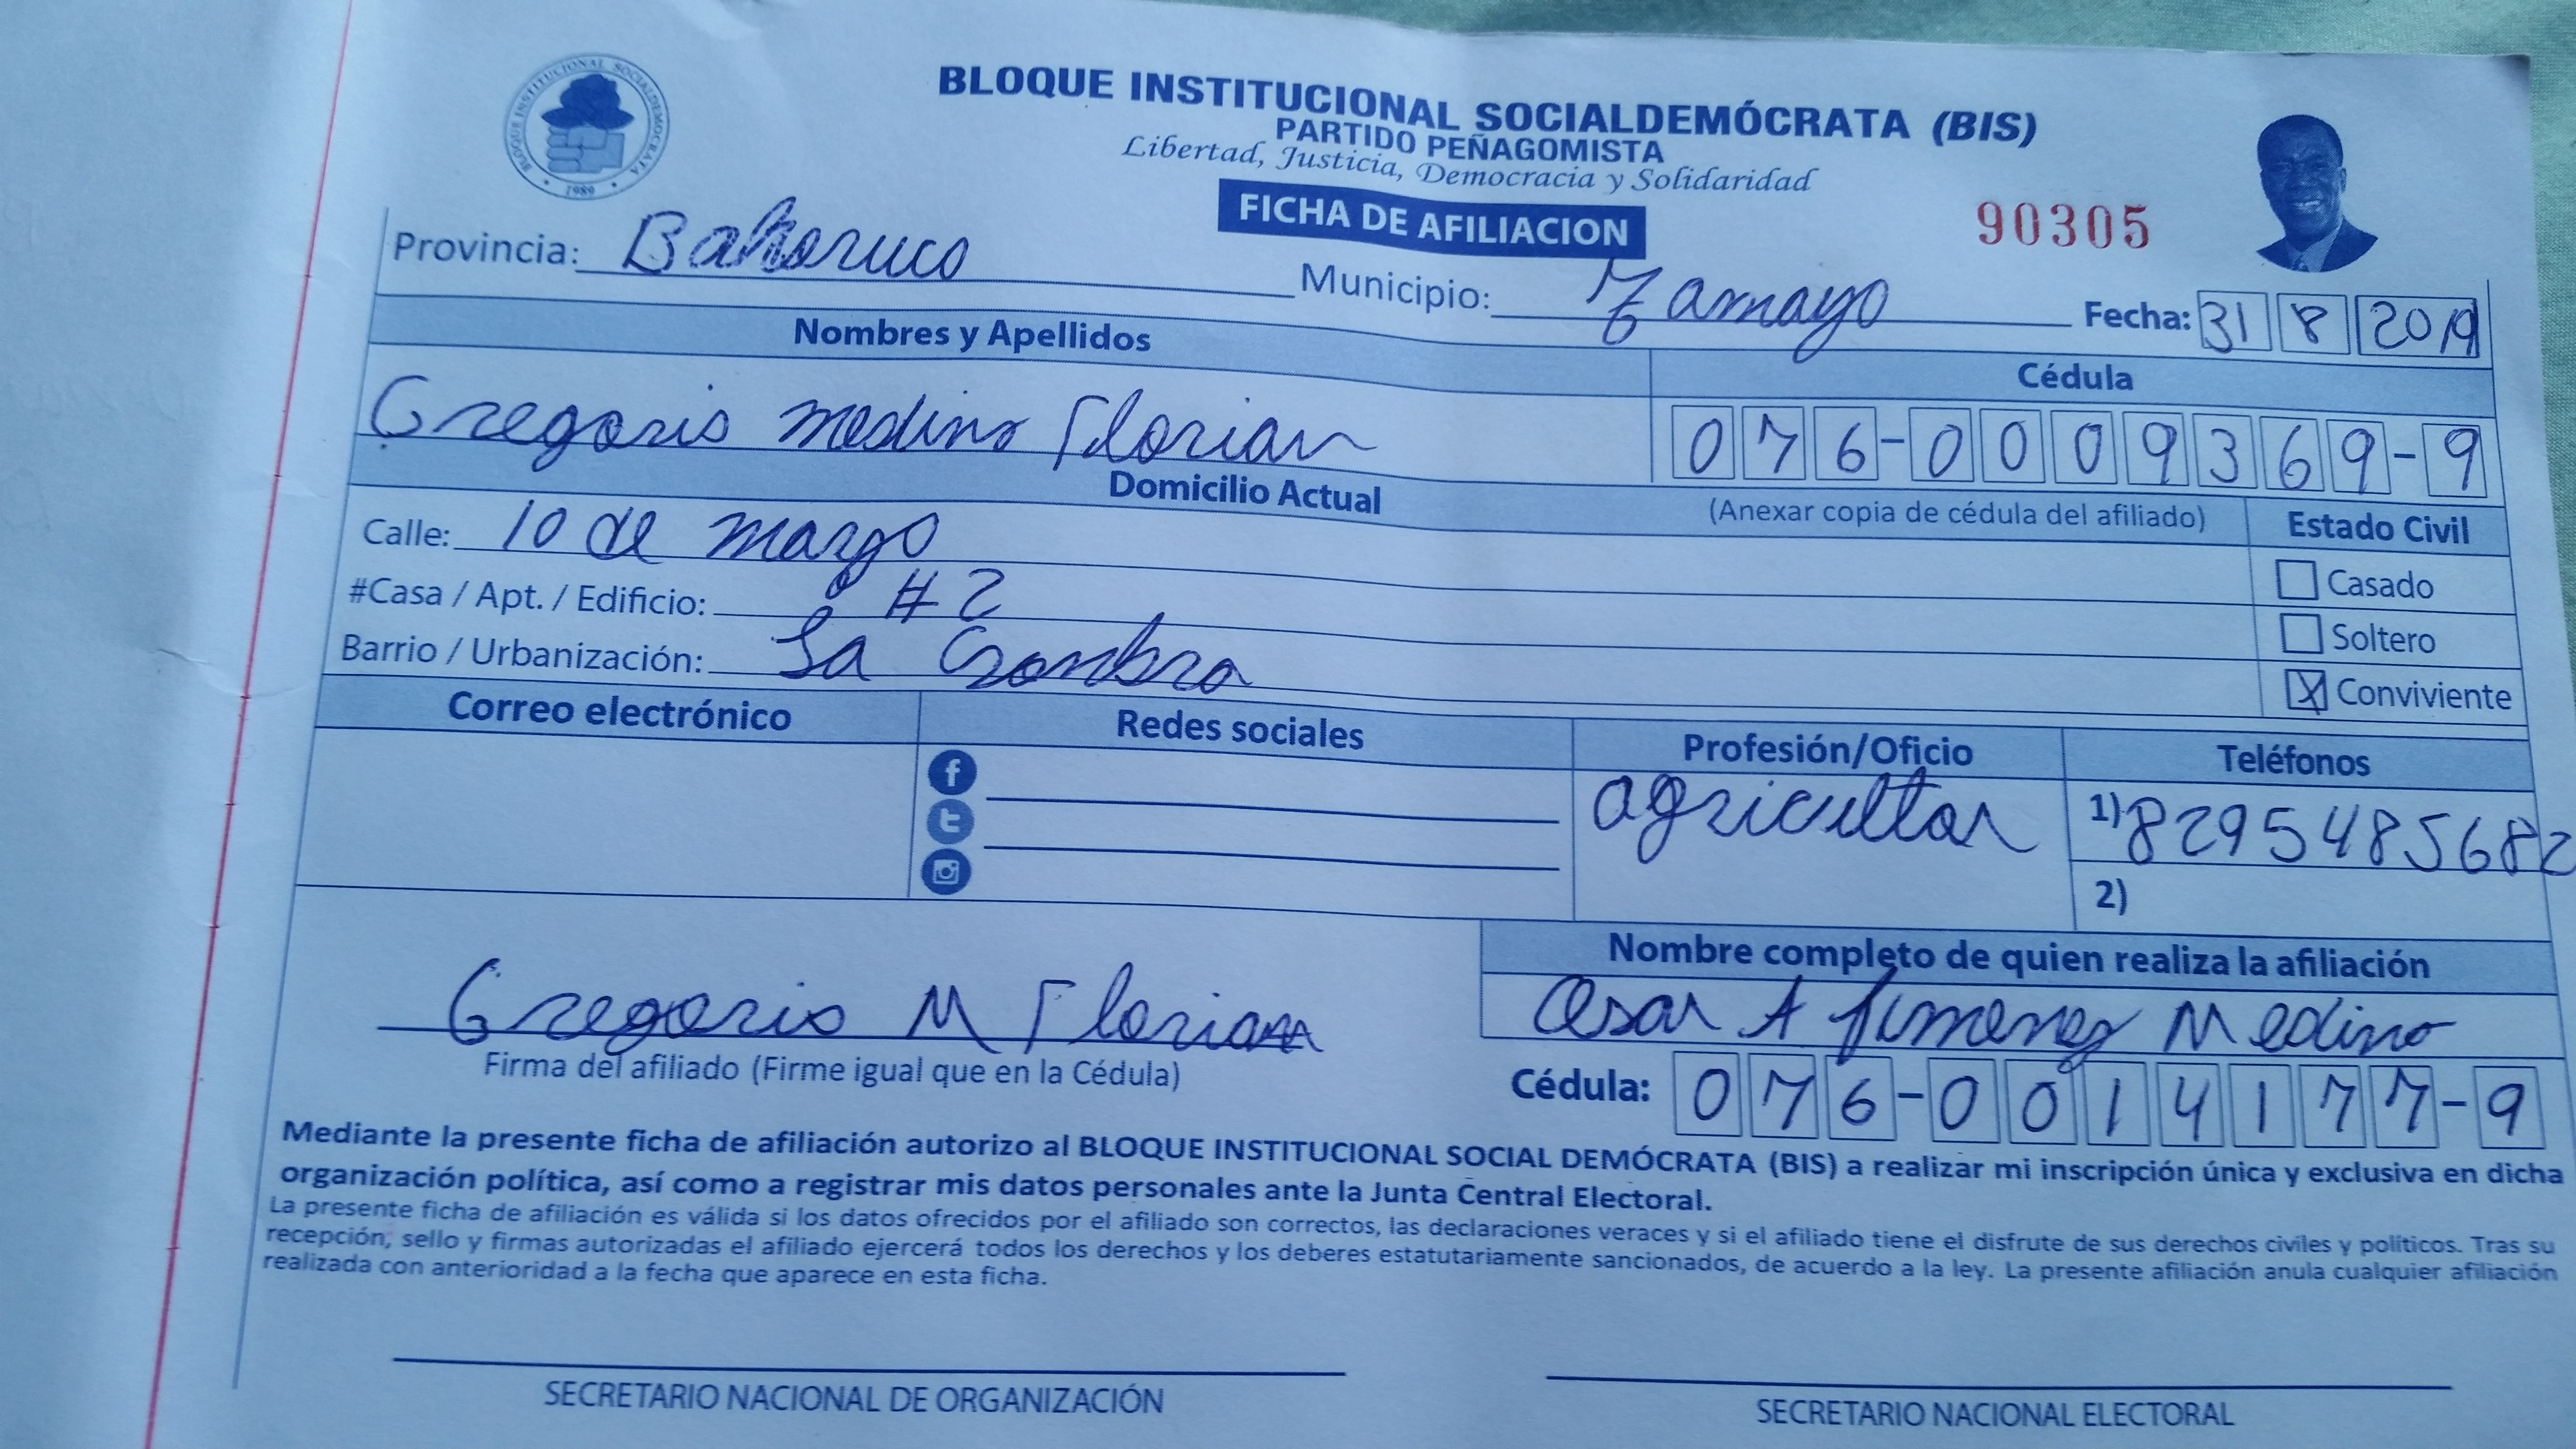 BLOQUE INSTITUCIONAL SOCIALDEMÓCRATA
1989
BLOQUE INSTITUCIONAL SOCIALDEMÓCRATA (BIS)
PARTIDO PEÑAGOMISTA
Libertad, Justicia, Democracia y Solidaridad
FICHA DE AFILIACION
90305
Provincia: Bahoruco Municipio: Tamayo Fecha: 31 8 2019
Nombres y Apellidos Cédula
Gregorio medina Florian 076-0009369-9
Domicilio Actual (Anexar copia de cédula del afiliado) Estado Civil
Calle: 10 de marzo
Casado
#Casa / Apt. / Edificio: #2
Soltero
Barrio / Urbanización: La
X Conviviente
Correo electrónico Redes sociales Profesión/Oficio Teléfonos
agricultor 1) 8295485682
2)
Nombre completo de quien realiza la afiliación
Gregorio M Florian Cesar A Jimenez Medina
Firma del afiliado (Firme igual que en la Cédula) Cédula: 076-0014177-9
Mediante la presente ficha de afiliación autorizo al BLOQUE INSTITUCIONAL SOCIAL DEMÓCRATA (BIS) a realizar mi inscripción única y exclusiva en dicha
organización política, así como a registrar mis datos personales ante la Junta Central Electoral.
La presente ficha de afiliación es válida si los datos ofrecidos por el afiliado son correctos, las declaraciones veraces y si el afiliado tiene el disfrute de sus derechos civiles y políticos. Tras su
recepción, sello y firmas autorizadas el afiliado ejercerá todos los derechos y los deberes estatutariamente sancionados, de acuerdo a la ley. La presente afiliación anula cualquier afiliación
realizada con anterioridad a la fecha que aparece en esta ficha.
SECRETARIO NACIONAL DE ORGANIZACIÓN SECRETARIO NACIONAL ELECTORAL